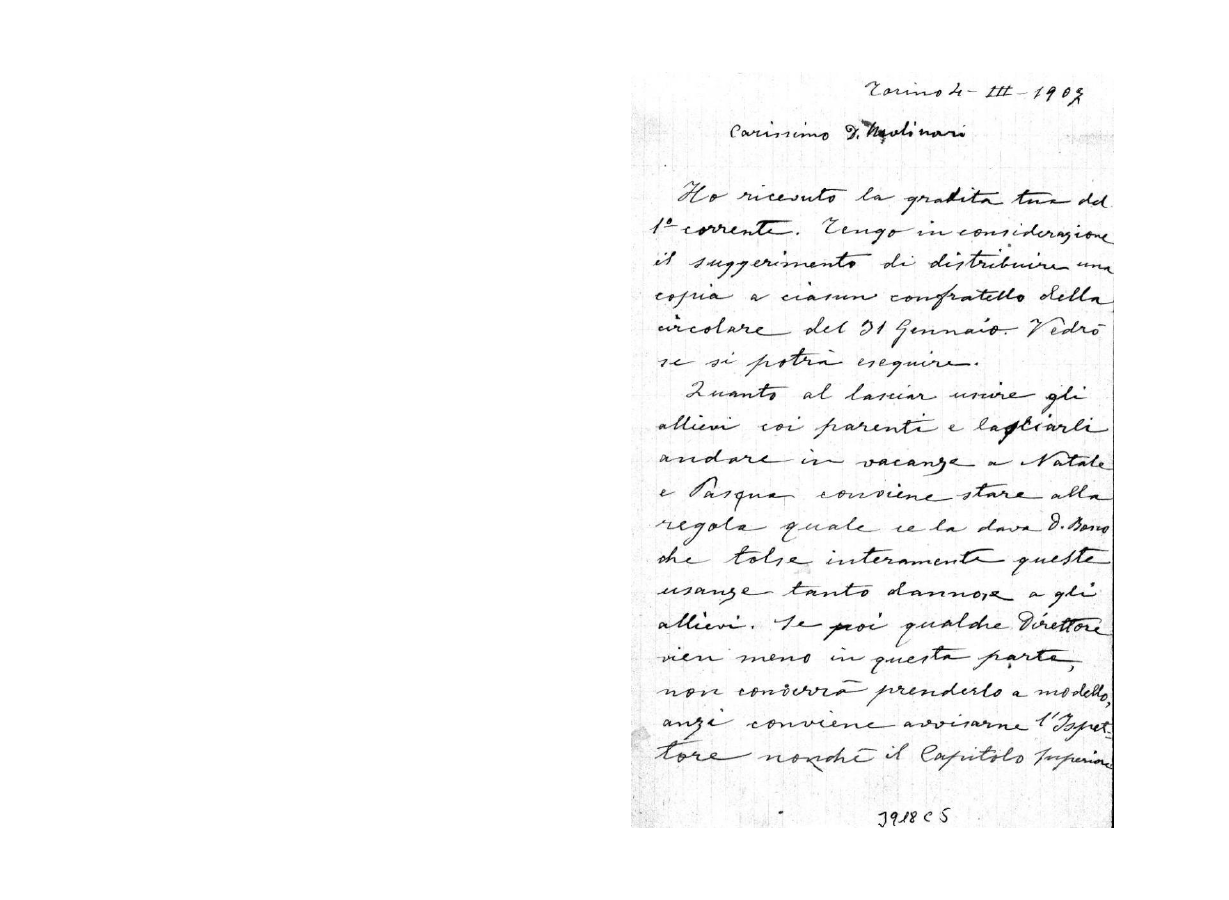 Torino 4 - III - 1907
Carissimo D. Molinari
Ho ricevuto la gradita tua del
1º corrente. Tengo in considerazione
il suggerimento di distribuire una
copia a ciasun confratello della
circolare del 31 Gennaio. Vedrò
se si potrà eseguire.
Quanto al lasciar uscire gli
allievi coi parenti e lasciarli
andare in vacanze a Natale
e Pasqua conviene stare alla
regola quale ce la dava D. Bosco
che tolse interamente queste
usanze tanto dannose a gli
allievi. Se poi qualche Direttore
vien meno in questa parte,
non converrà prenderlo a modello,
anzi conviene avvisarne l'Ispet-
tore nonchè il Capitolo Superiore
3918 C 5